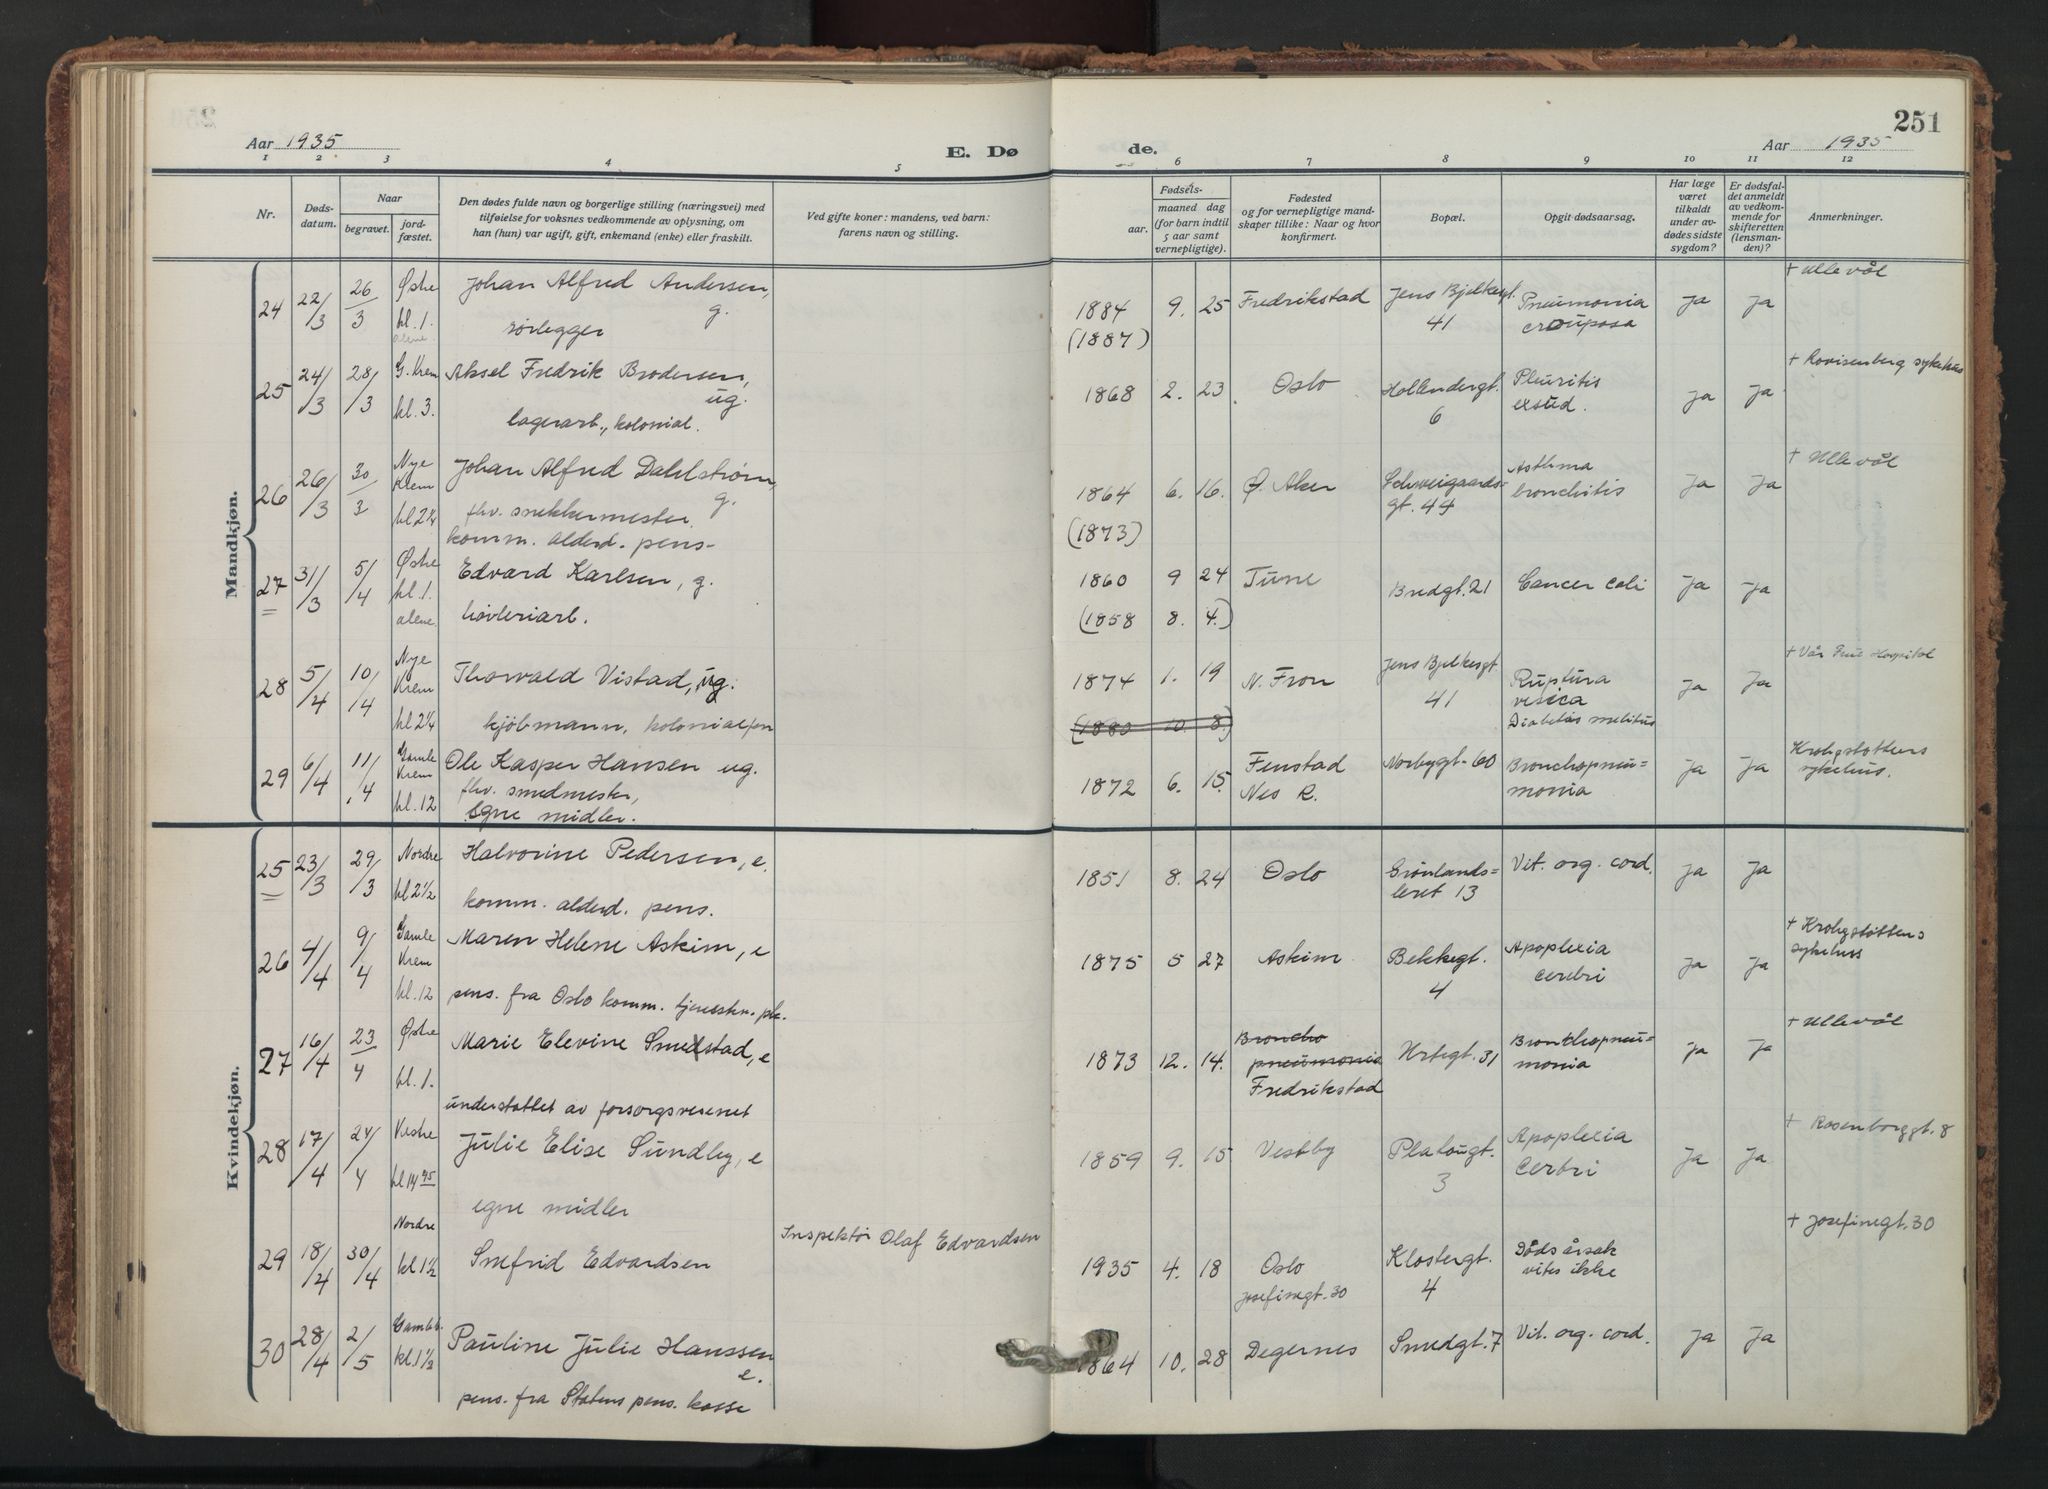 251
Aar 1935 E. Dø de. Aar 1935
1 2 3 4 5 6 7 8 9 10 11 12
Nr.
Døds-
datum.
Naar
begravet.
jord-
fæstet.
Den dødes fulde navn og borgerlige stilling (næringsvei) med
tilføielse for voksnes vedkommende av oplysning, om
han (hun) var ugift, gift, enkemand (enke) eller fraskilt.
Ved gifte koner: mandens, ved barn:
farens navn og stilling.
Fødsels-
aar.
maaned dag
(for barn indtil
5 aar samt
vernepligtige).
Fødested
og for vernepligtige mand-
skaper tillike: Naar og hvor
konfirmert.
Bopæl.
Opgit dødsaarsag.
Har læge
været
tilkaldt
under av-
dødes sidste
sygdom?
Er dødsfal-
det anmeldt
av vedkom-
mende for
skifteretten
(lensman-
den)?
Anmerkninger.
Mandkjøn.
24 22/3 26/3 Østre
kl. 1.
alene
Johan Alfred Andersen,
g.
rørlegger
1884 9. 25
(1887)
Fredrikstad
Jens Bjelkesgt.
41
Pneumonia
crouposa
ja ja
+ Ullevål
25 24/3 28/3 G. Krem
kl. 3.
Aksel Fredrik Brodersen,
ug.
lagerarb., kolonial.
1868 2. 23
Oslo
Hollendergt.
6
Pleuritis
exsud.
ja ja
+ Lovisenberg sykehus
26 26/3 30/3 Nye
Krem
kl 2¼
Johan Alfred Dahlstrøm,
g.
fhv. snekkermester.
komm. alderd. pens-
1864 6. 16.
(1873)
Ø. Aker
Schweigaards=
gt. 44
Asthma
bronchitis
ja ja
+ Ullevål
27 31/3 5/4 Østre
kl. 1.
alene.
Edvard Karlsen, g.
høvleriarb.
1860 9 24
(1858 8. 4.)
Tune
Bredgt. 21
Cancer coli
ja ja
28 5/4 10/4 Nye
Krem
kl 2¼
Thorvald Vistad, ug.
kjøbmann, kolonial
1874 1. 19
(1880 10. 8.)
N. Fron
Jens Bjelkesgt
41
Ruptura
vesica
Diabetes melitus
ja ja
+ Vår Frue Hospital
29 6/4 11/4 Gamle
Krem
kl. 12
Ole Kasper Hansen ug.
fhv. smedmester,
egne midler.
1872 6. 15.
Fenstad
Nes R.
Norbygt. 60
Bronchopneu=
monia
ja ja
Krohgstøttens
sykehus.
Kvindekjøn.
25 23/3 29/3 Nordre
kl 2½
Halvorine Pedersen, e.
komm. alderd. pens.
1851 8. 24
Oslo
Grønlands=
leret 13
Vit. org. cord.
ja ja
26 4/4 9/4 Gamle
Krem
kl. 12
Maren Helene Askim, e
pens. fra Oslo komm. tjenestm. p.k.
1875 5 27
Askim
Bekkegt.
4
Apoplexia
cerebri
ja ja
+ Krohgstøttens
sykehus
27 16/4 23/4 Østre
kl. 1.
Marie Elevine Smedstad, e
understøttet av forsorgsvesenet
1873 12. 14.
Broncho
pneumonia
Fredrikstad
Urtegt. 31
Bronchopneu=
monia
ja ja
+ Ullevål
28 17/4 24/4 Vestre
kl 14 45
Julie Elise Sundby, e
egne midler
1859 9. 15
Vestby
Platougt.
3
Apoplexia
Cerbri
ja ja
+ Rosenborggt. 8
29 18/4 30/4 Nordre
kl 1½
Snefrid Edvardsen
Inspektør Olaf Edvardsen
1935 4. 18
Oslo
Josefinegt. 30
Klostergt.
4
Dødsårsak
vites ikke
+ Josefinegt. 30
30 28/4 2/5 Gamleb.
kl. 1½
Pauline Julie Hanssen
e.
pens. fra Statens pens. kasse
1864 10. 28
Degernes
Smedgt. 7
Vit. org. cord.
ja ja